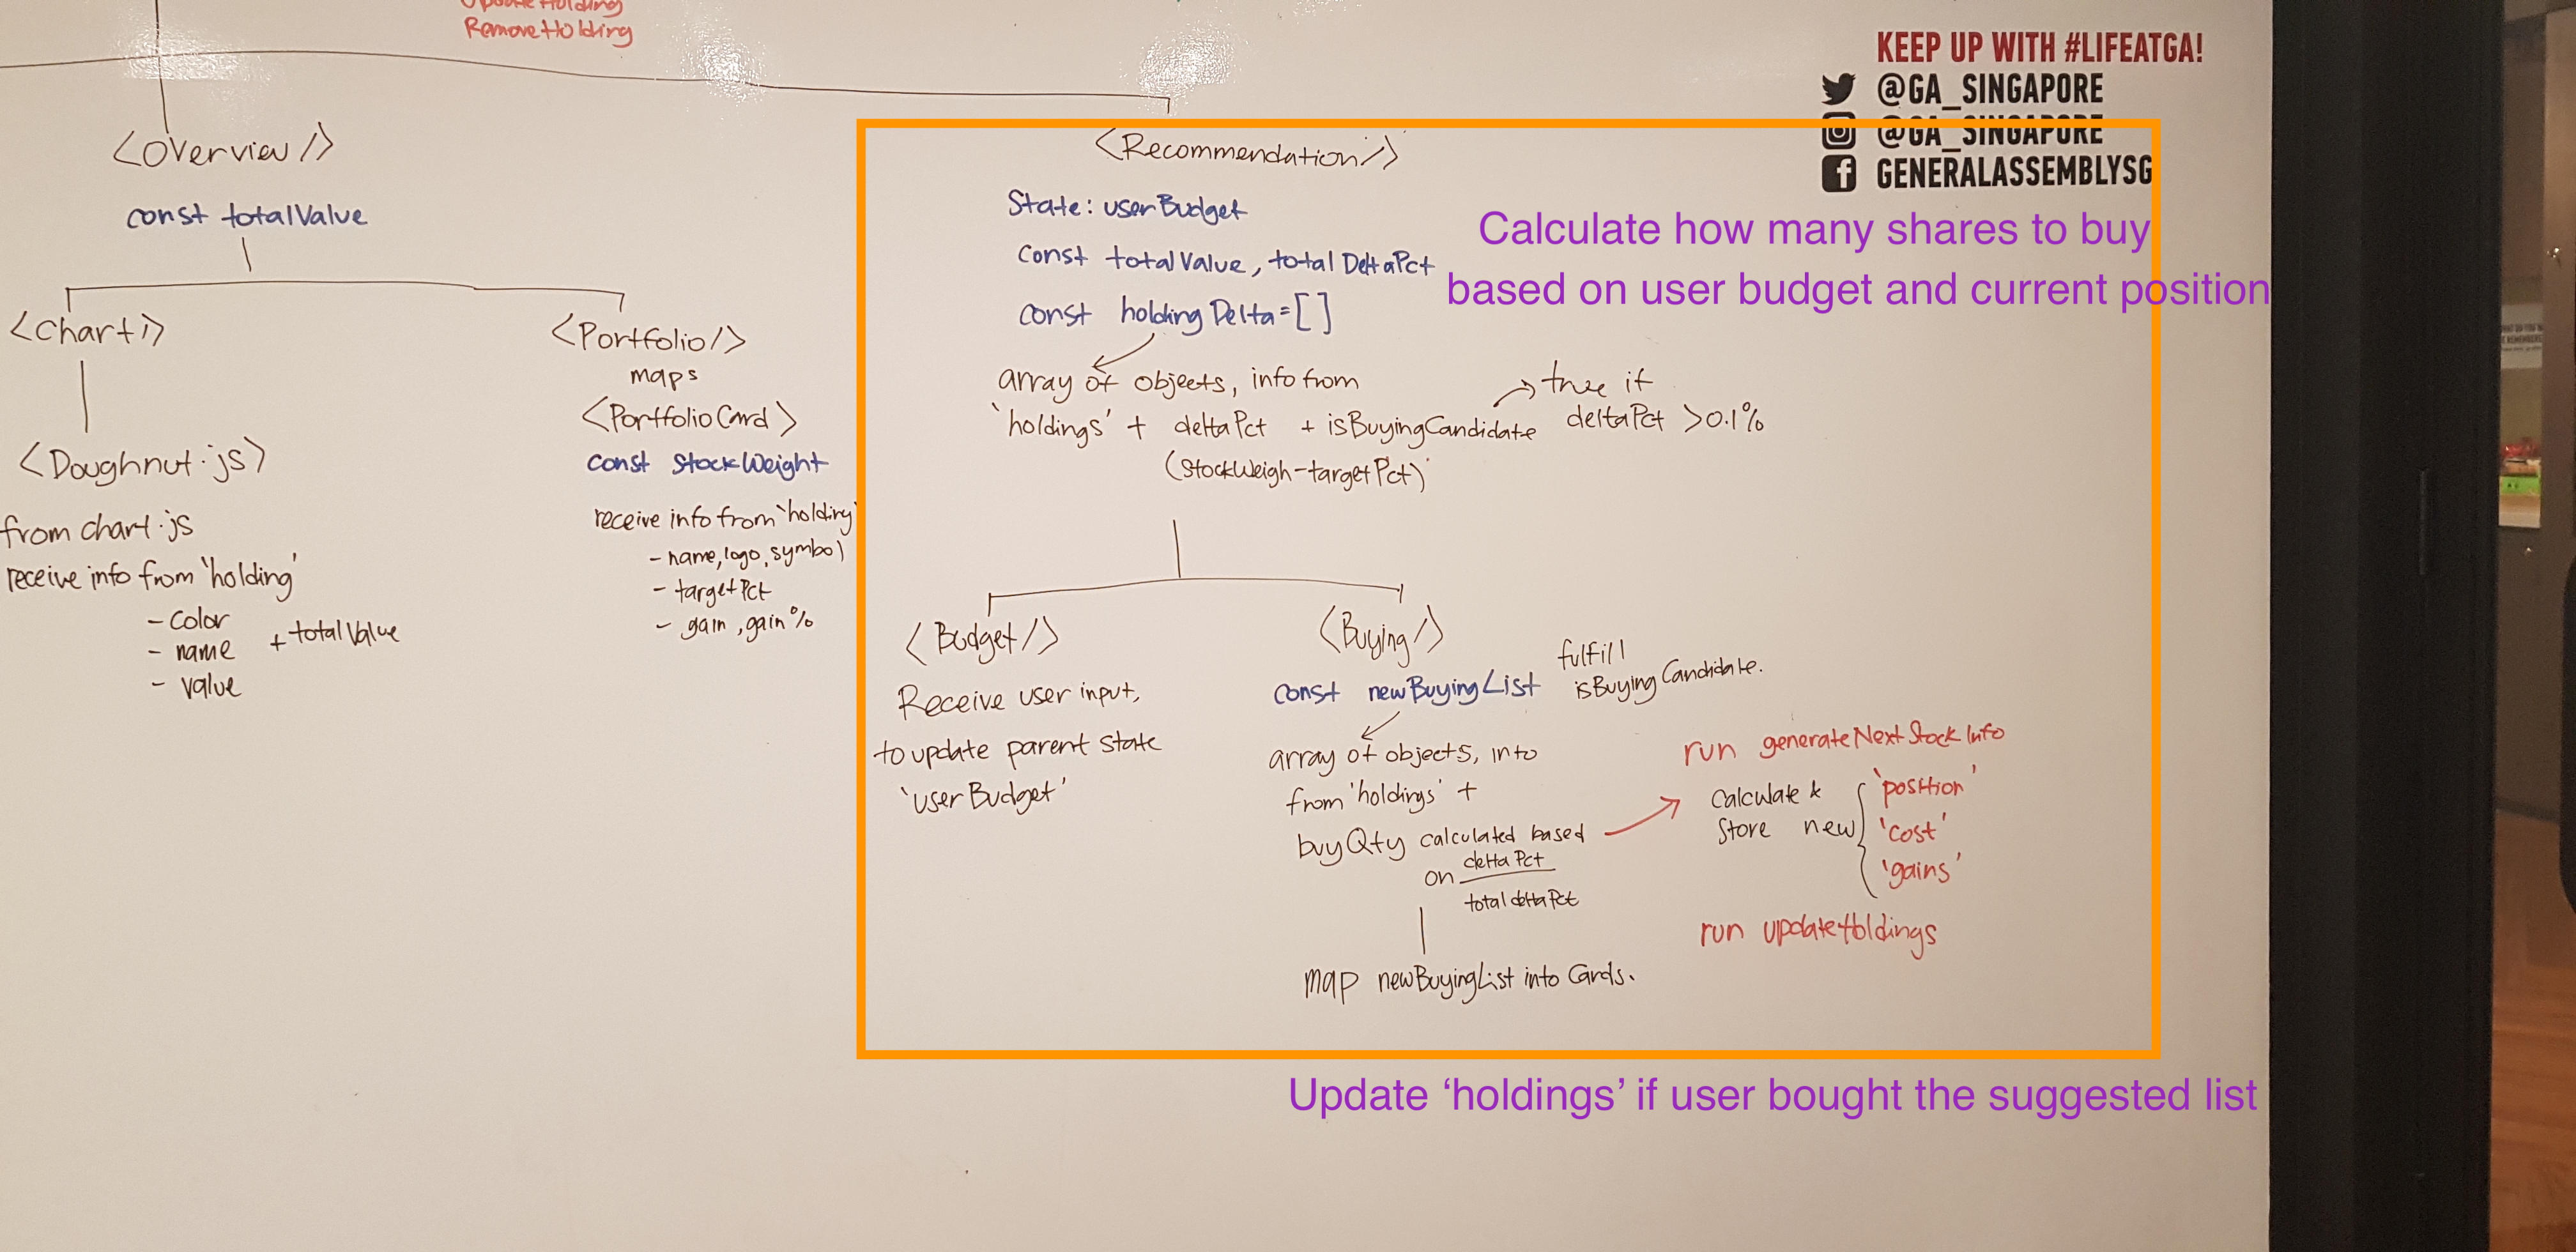 UpdateHolding
RemoveHolding
KEEP UP WITH #LIFEATGA!
@GA_SINGAPORE
@GA_SINGAPORE
GENERALASSEMBLYSG
<Overview/>
const totalValue
<Chart/>
<Doughnut.js>
from chart.js
receive info from 'holding'
- color
- name + totalValue
- value
<Portfolio/>
maps
<PortfolioCard>
const StockWeight
receive info from 'holding'
- name, logo, symbol
- targetPct
- gain, gain%
<Recommendation/>
State: userBudget
const totalValue, totalDeltaPct
const holdingDelta = []
Calculate how many shares to buy
based on user budget and current position
array of objects, info from
'holdings' + deltaPct + isBuyingCandidate
(StockWeigh-targetPct)
true if
deltaPct >0.1%
<Budget/>
Receive user input,
to update parent state
'userBudget'
<Buying/>
const newBuyingList
fulfill
isBuyingCandidate.
array of objects, into
from 'holdings' +
buyQty calculated based
on deltaPct
total deltaPct
map newBuyingList into Cards.
run generateNextStockInfo
Calculate &
Store new
'position'
'cost'
'gains'
run updateHoldings
Update ‘holdings’ if user bought the suggested list